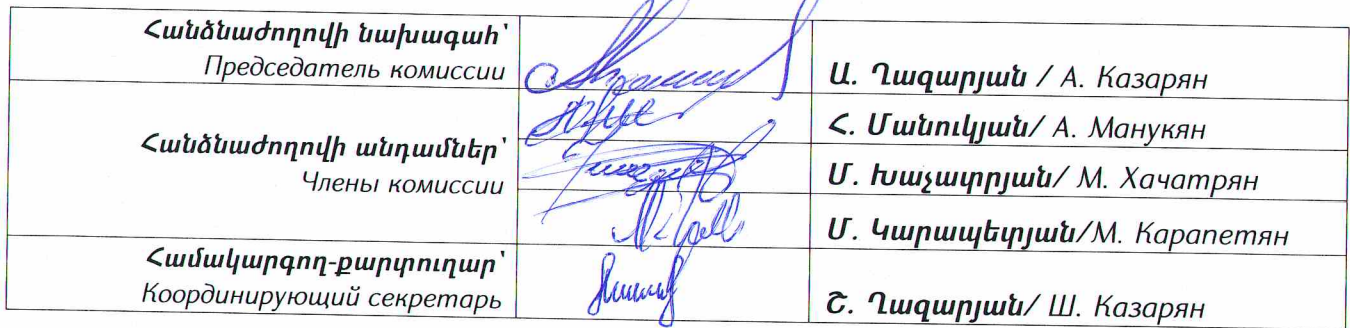 Հանձնաժողովի նախագահ՝
Председатель комиссии
Ա. Ղազարյան / А. Казарян
Հ. Մանուկյան/ А. Манукян
Հանձնաժողովի անդամներ՝
Члены комиссии
Մ. Խաչատրյան/ М. Хачатрян
Մ. Կարապետյան/М. Карапетян
Համակարգող-քարտուղար՝
Координирующий секретарь
Շ. Ղազարյան/ Ш. Казарян